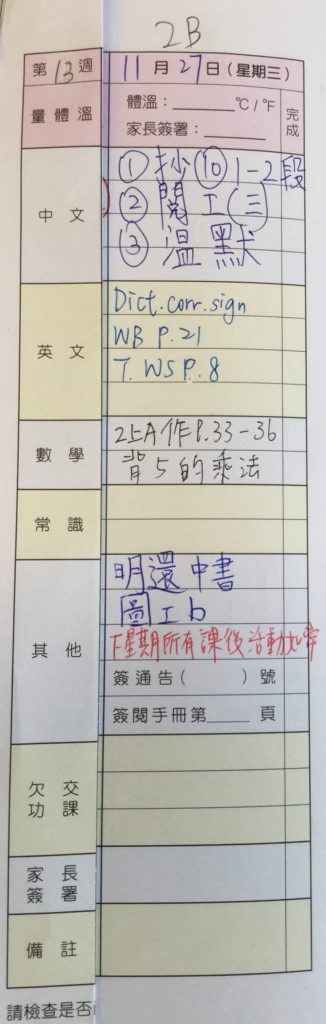 2B
第 13 週 11 月 27 日 (星期三)
量體溫 體溫：______ ℃ / ℉ 完成
家長簽署：______
中 文 ① 抄⑩ 1-2段
② 閱工(三)
③ 溫默
英 文 Dict. corr. sign
WB P.21
T. WS P.8
數 學 2上A作 P.33-36
背5的乘法
常 識
其 他 明還中書
圖工b
下星期所有課後活動如常
簽通告 (　　) 號
簽閱手冊第____頁
欠 交 功 課
家 長 簽 署
備 註
請檢查是否